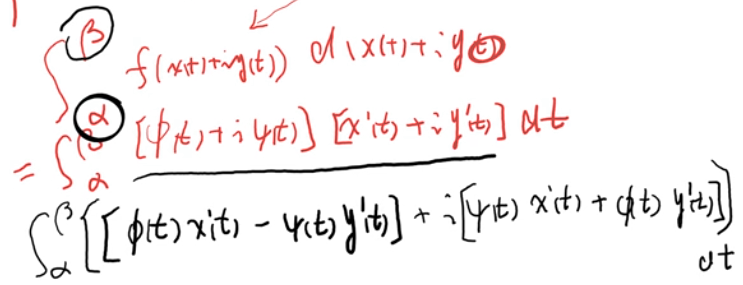 ∫_α^β f(x(t)+iy(t)) d(x(t)+iy(t)
= ∫_α^β [ϕ(t)+iψ(t)] [x'(t)+iy'(t)] dt
∫_α^β {[ϕ(t)x'(t) - ψ(t)y'(t)] + i[ψ(t) x'(t) + ϕ(t) y'(t)]}
dt